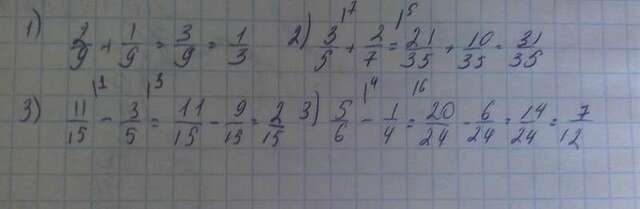 1) 2/9 + 1/9 = 3/9 = 1/3 2) 3/5 |7 + 2/7 |5 = 21/35 + 10/35 = 31/35
3) 11/15 |1 - 3/5 |3 = 11/15 - 9/15 = 2/15 3) 5/6 |4 - 1/4 |6 = 20/24 - 6/24 = 14/24 = 7/12